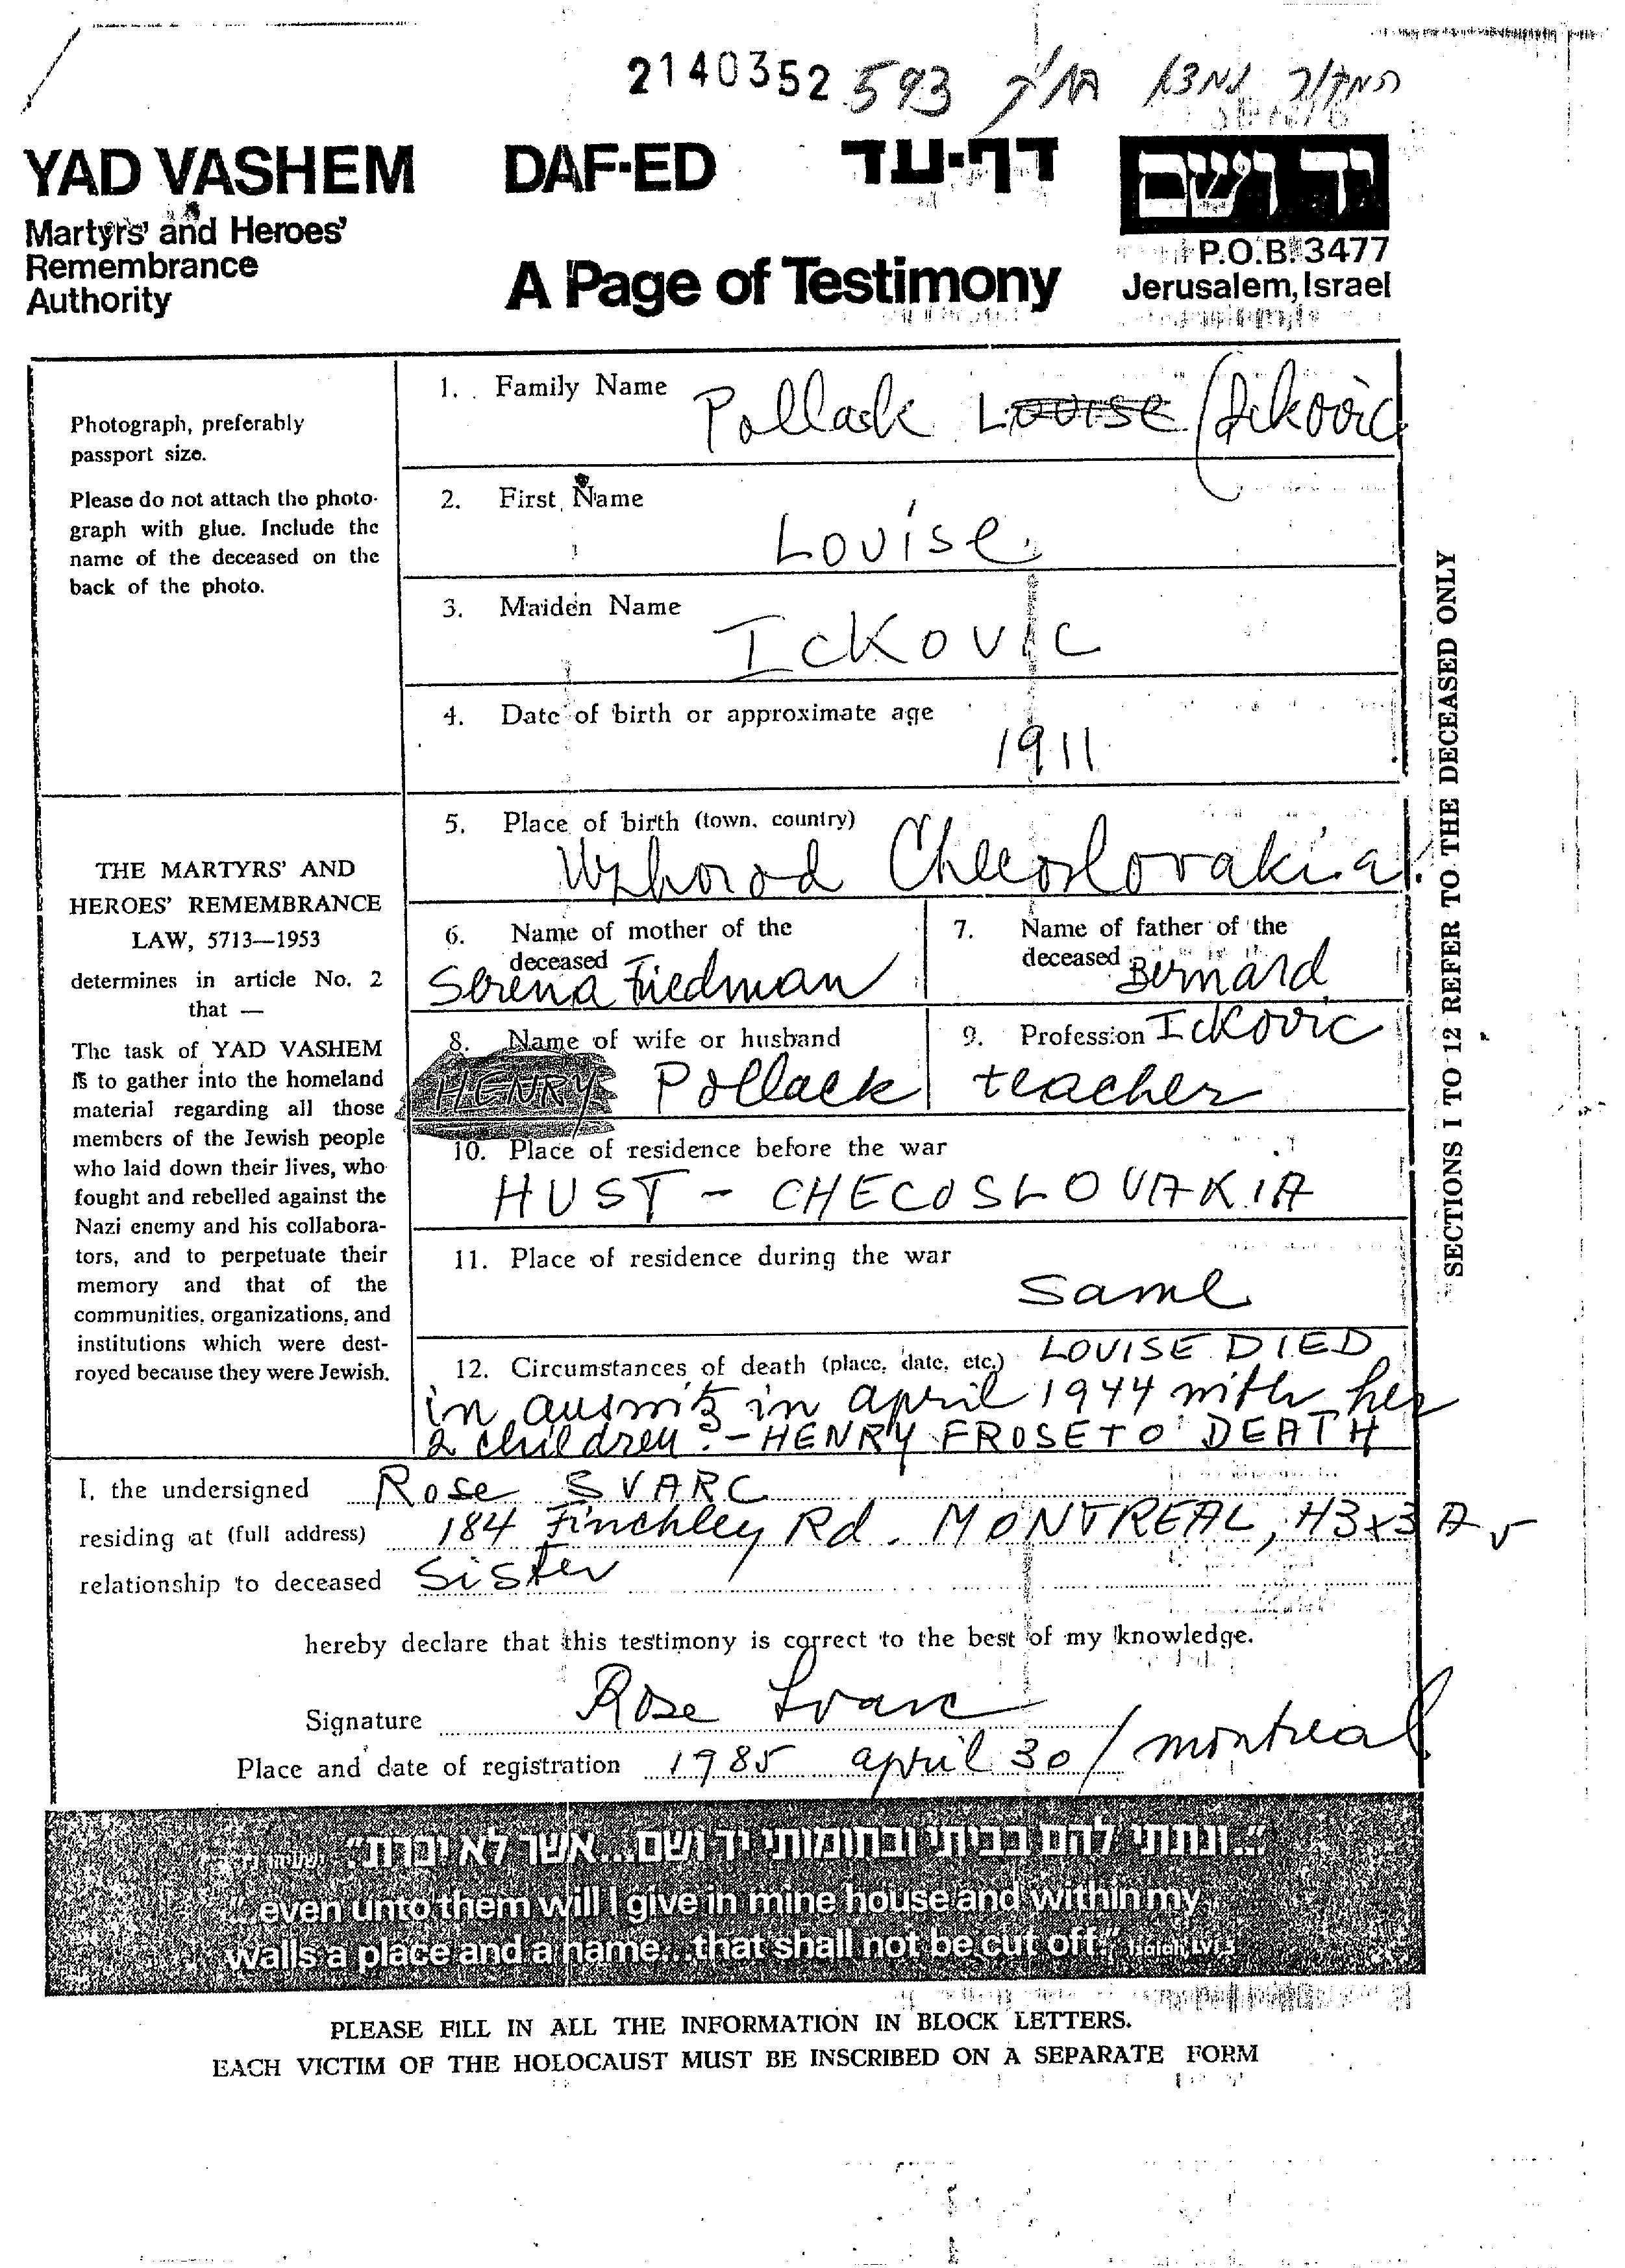 2140352 593 המקור נמצא בתיק
YAD VASHEM DAF-ED דף-עד יד ושם
Martyrs' and Heroes'
Remembrance
Authority
A Page of Testimony
P.O.B. 3477
Jerusalem, Israel
Photograph, preferably
passport size.
Please do not attach the photo-
graph with glue. Include the
name of the deceased on the
back of the photo.
THE MARTYRS' AND
HEROES' REMEMBRANCE
LAW, 5713—1953
determines in article No. 2
that —
The task of YAD VASHEM
is to gather into the homeland
material regarding all those
members of the Jewish people
who laid down their lives, who
fought and rebelled against the
Nazi enemy and his collabora-
tors, and to perpetuate their
memory and that of the
communities, organizations, and
institutions which were dest-
royed because they were Jewish.
1. Family Name Pollack Louise (Ickovic
2. First Name
Louise
3. Maiden Name
Ickovic
4. Date of birth or approximate age
1911
5. Place of birth (town, country)
Uzhorod Checoslovakia
6. Name of mother of the
deceased
Serena Friedman
7. Name of father of the
deceased Bernard
Ickovic
8. Name of wife or husband
HENRY Pollack
9. Profession
teacher
10. Place of residence before the war
HUST - CHECOSLOVAKIA
11. Place of residence during the war
Same
12. Circumstances of death (place, date, etc.) LOUISE DIED
in auswitz in april 1944 with her
2 children. - HENRY FROSE TO DEATH
SECTIONS 1 TO 12 REFER TO THE DECEASED ONLY
I, the undersigned Rose SVARC
residing at (full address) 184 Finchley Rd. MONTREAL, H3X3A
relationship to deceased Sister
hereby declare that this testimony is correct to the best of my knowledge.
Signature Rose Svarc
Place and date of registration 1985 april 30 / montreal
"...ונתתי להם בביתי ובחומותי יד ושם...אשר לא יכרת."
"...even unto them will I give in mine house and within my
walls a place and a name...that shall not be cut off." Isaiah LVI 5
PLEASE FILL IN ALL THE INFORMATION IN BLOCK LETTERS.
EACH VICTIM OF THE HOLOCAUST MUST BE INSCRIBED ON A SEPARATE FORM